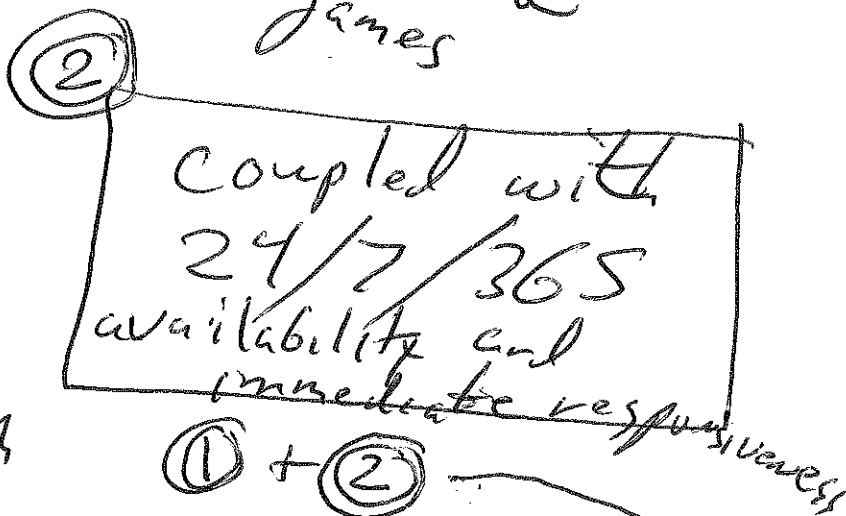 James
2
Coupled with
24/7/365
availability and
immediate responsiveness
1 + 2